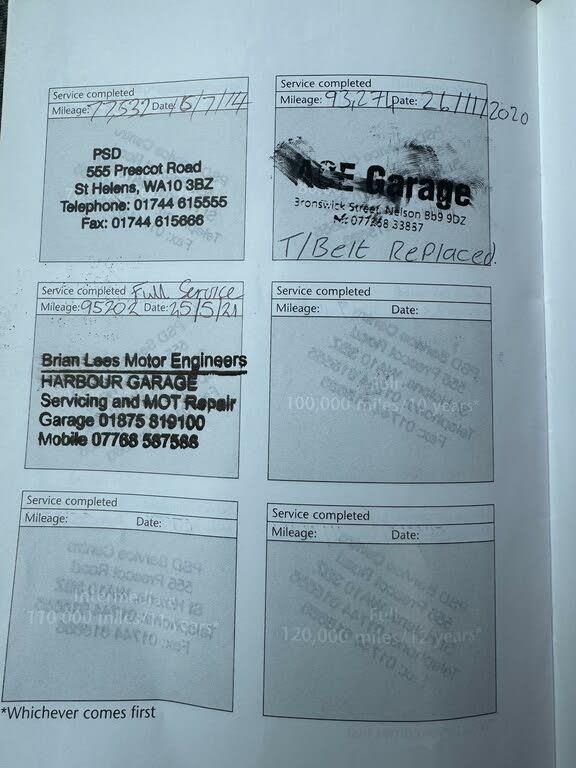 Service completed
Mileage: 77532 Date: 15/7/14
PSD
555 Prescot Road
St Helens, WA10 3BZ
Telephone: 01744 615555
Fax: 01744 615666
Service completed
Mileage: 93,274 Date: 26/11/2020
Garage
Bronswick Street, Nelson BB9 9DZ
T/Belt Replaced.
Service completed Full Service
Mileage: 95202 Date: 25/5/21
Brian Lees Motor Engineers
HARBOUR GARAGE
Servicing and MOT Repair
Garage 01875 819100
Mobile 07768 587566
Service completed
Mileage: Date:
Full
100,000 miles/10 years*
Service completed
Mileage: Date:
110,000 miles
Service completed
Mileage: Date:
Full
120,000 miles/12 years*
*Whichever comes first